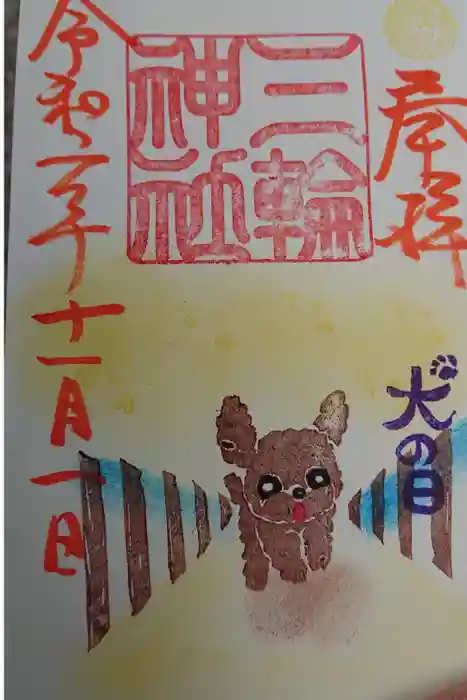 奉拝
犬の日
三輪
神社
令和二年十一月一日